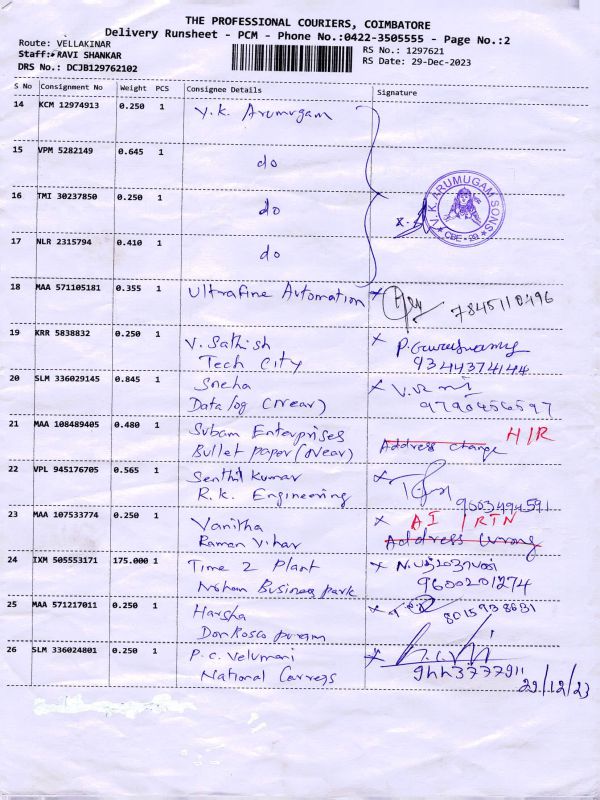 THE PROFESSIONAL COURIERS, COIMBATORE
Delivery Runsheet - PCM - Phone No.:0422-3505555 - Page No.:2
Route: VELLAKINAR
Staff: RAVI SHANKAR
DRS No.: DCJB129762102
RS No.: 1297621
RS Date: 29-Dec-2023
S No Consignment No Weight PCS Consignee Details Signature
14 KCM 12974913 0.250 1 V.K. Arumugam
15 VPM 5282149 0.645 1 do
16 TMI 30237850 0.250 1 do
V.K.ARUMUGAM SONS
CBE-29
17 NLR 2315794 0.410 1 do
18 MAA 571105181 0.355 1 Ultrafine Automation x 7845110496
19 KRR 5838832 0.250 1 V. Sathish x P. Guruswamy
Tech City 9344374144
20 SLM 336029145 0.845 1 Sneha x
Data log (Near) 9790456597
21 MAA 108489405 0.480 1 Subam Enterprises H/R
Bullet paper (Near) Address change
22 VPL 945176705 0.565 1 Senthil Kumar x
R.K. Engineering 9003494591
23 MAA 107533774 0.250 1 Vanitha x AI / RTN
Raman Vihar Address wrong
24 IXM 505553171 175.000 1 Time 2 Plant x
Business park 9600201274
25 MAA 571217011 0.250 1 Harsha x 8015938631
Don Bosco puram
26 SLM 336024801 0.250 1 P.C. Velumani x
National 9443777911
29/12/23